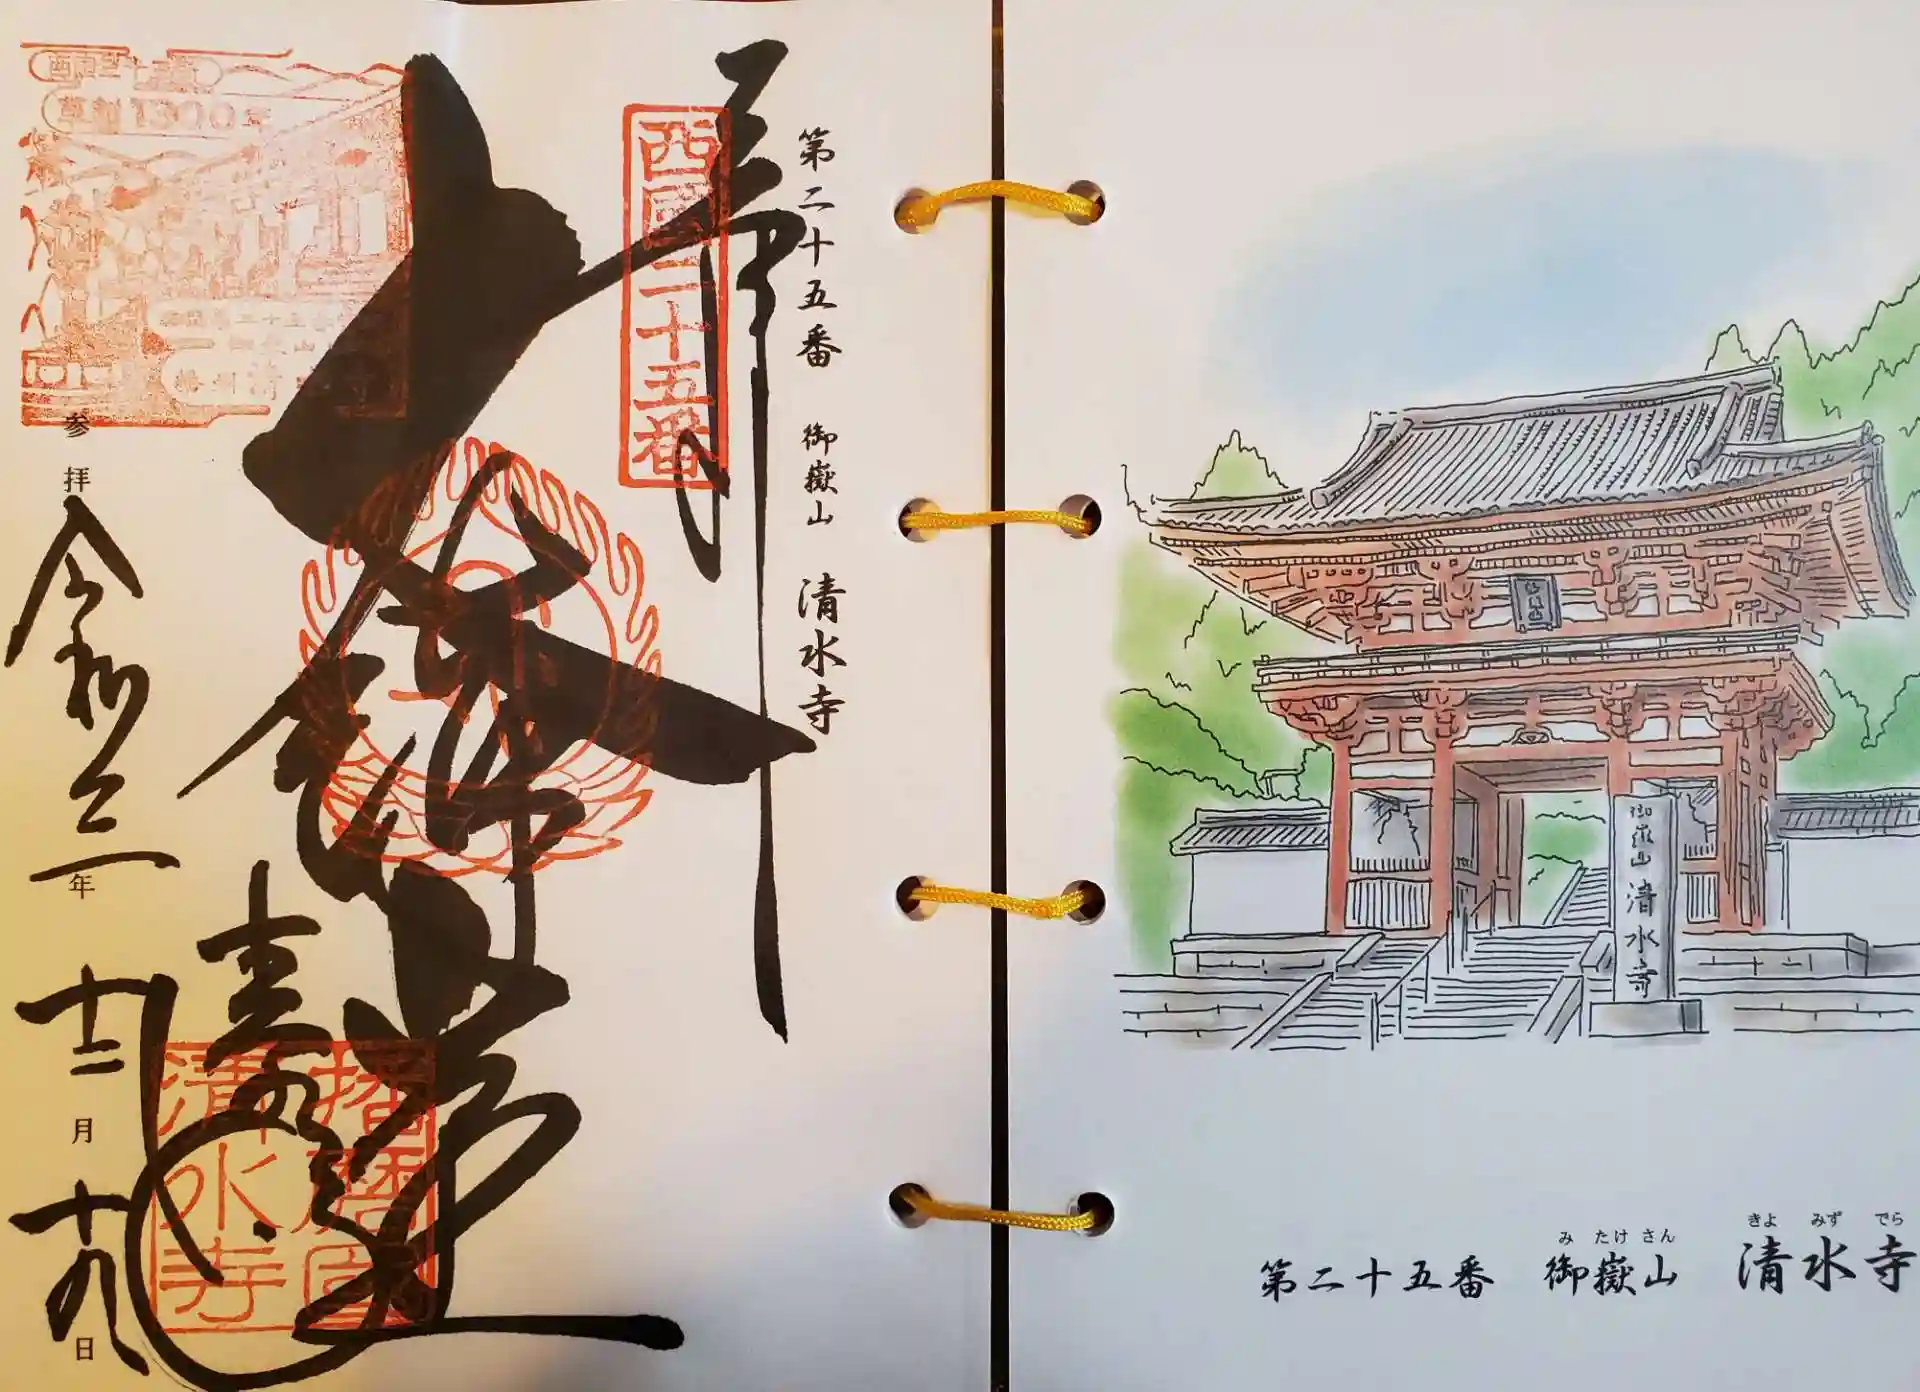 第二十五番 御嶽山 清水寺
奉拝
西国二十五番
播磨国
清水寺
草創1300年
参拝 令和三年 十二月 十九日
御嶽山 清水寺
み たけ さん きよ みず でら
第二十五番 御嶽山 清水寺